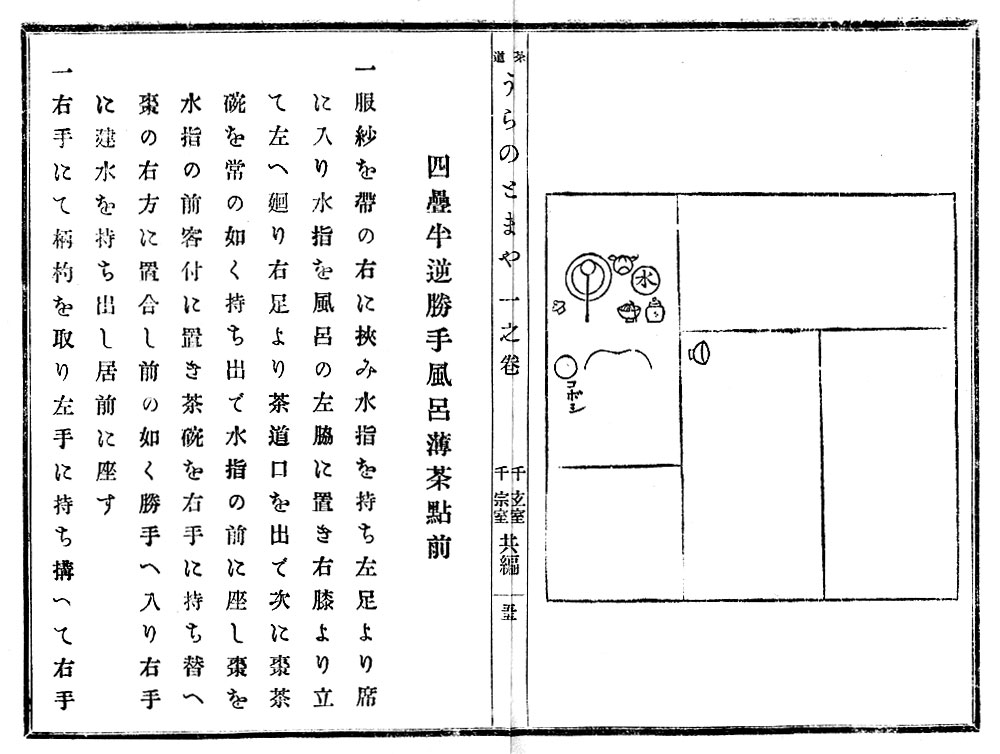 水
コボシ
茶道
うらのとまや一之卷
千宗室
共編
四疊半逆勝手風呂薄茶點前
一服紗を帶の右に挾み水指を持ち左足より席
に入り水指を風呂の左脇に置き右膝より立
て左へ廻り右足より茶道口を出で次に棗茶
碗を常の如く持ち出で水指の前に座し棗を
水指の前客付に置き茶碗を右手に持ち替へ
棗の右方に置合し前の如く勝手へ入り右手
に建水を持ち出し居前に座す
一右手にて柄杓を取り左手に持ち搆へて右手